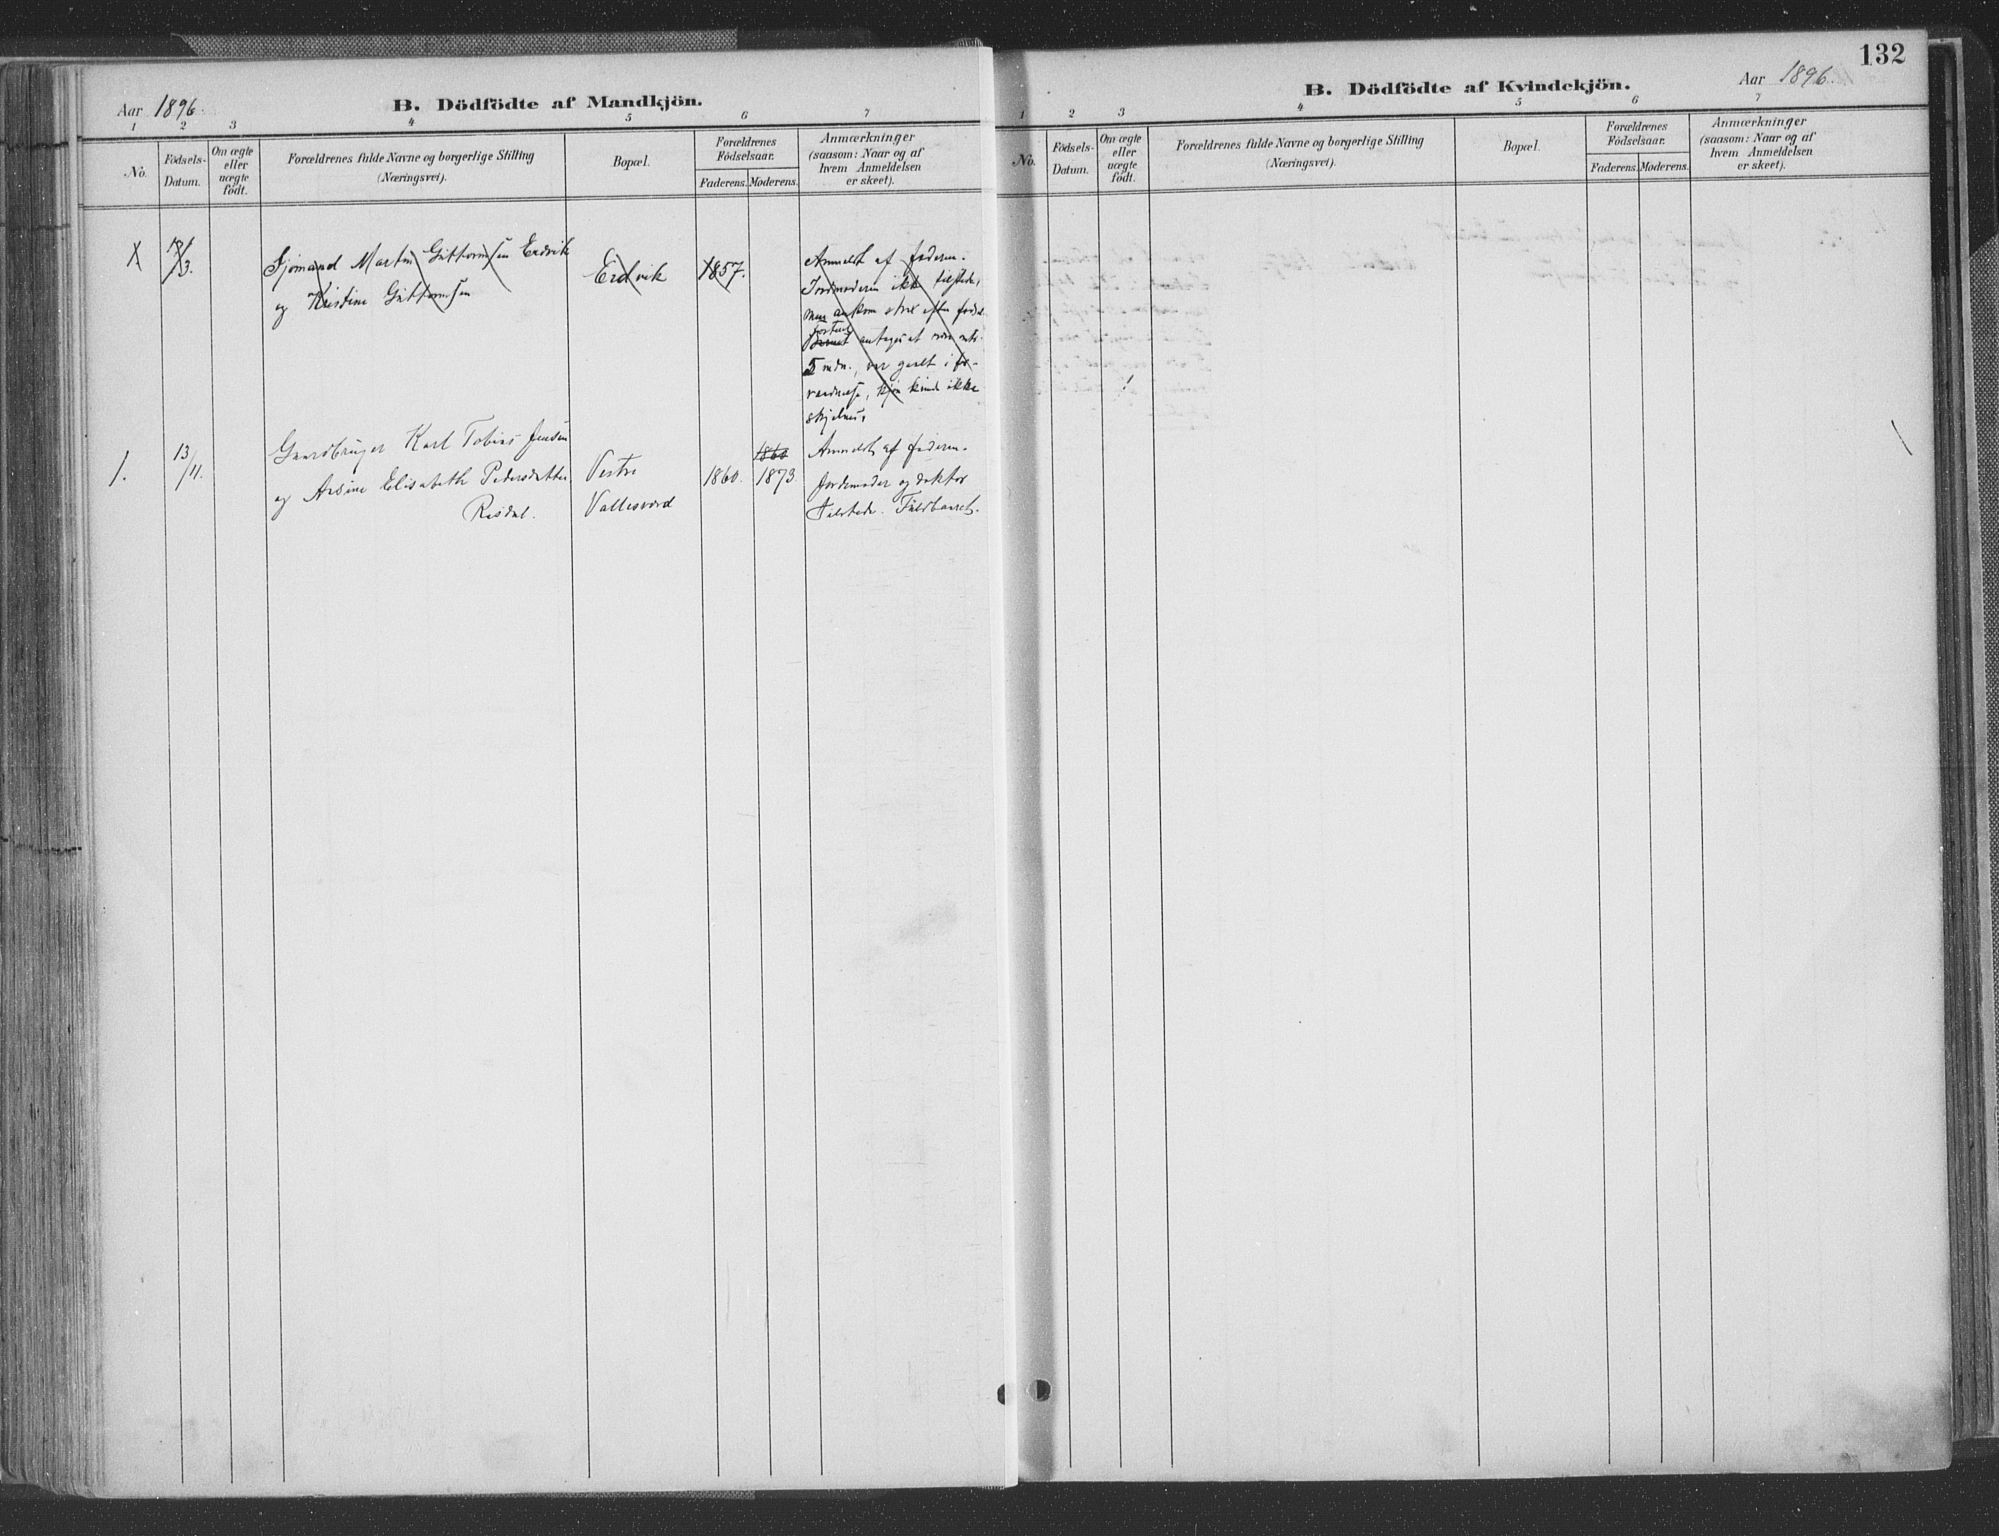 Aar 1896.
B. Dödfödte af Mandkjön.
1 2 3 4 5 6 7
No.
Födsels-
Datum.
Om ægte
eller
uægte
födt.
Forældrenes fulde Navne og borgerlige Stilling
(Næringsvei).
Bopæl.
Forældrenes
Födselsaar.
Faderens. Moderens.
Anmærkninger
(saasom: Naar og af
hvem Anmeldelsen
er skeet).
1.
/3.
Sjömand Martin Guttormsen Eidvik
og Kristine Guttormsen
Eidvik
1857.
Anmeldt af faderen.
Jordmoderen ikke tilstede,
men ankom strax efter föds.
Fosteret
Barnet antages at være
5 mdn., var gaaet i for-
raadnelse, kjön kunde ikke
skjelnes.
1.
13/11.
Gaardbruger Karl Tobias Jensen
og Arsine Elisabeth Pedersdatter
Risdal.
Vestre
Vallesværd
1860.
1860
1873.
Anmeldt af faderen.
Jordemoder og doktor
Tilstede. Fuldbaaret.
132
Aar 1896.
B. Dödfödte af Kvindekjön.
1 2 3 4 5 6 7
No.
Födsels-
Datum.
Om ægte
eller
uægte
födt.
Forældrenes fulde Navne og borgerlige Stilling
(Næringsvei).
Bopæl.
Forældrenes
Födselsaar.
Faderens. Moderens.
Anmærkninger
(saasom: Naar og af
hvem Anmeldelsen
er skeet).